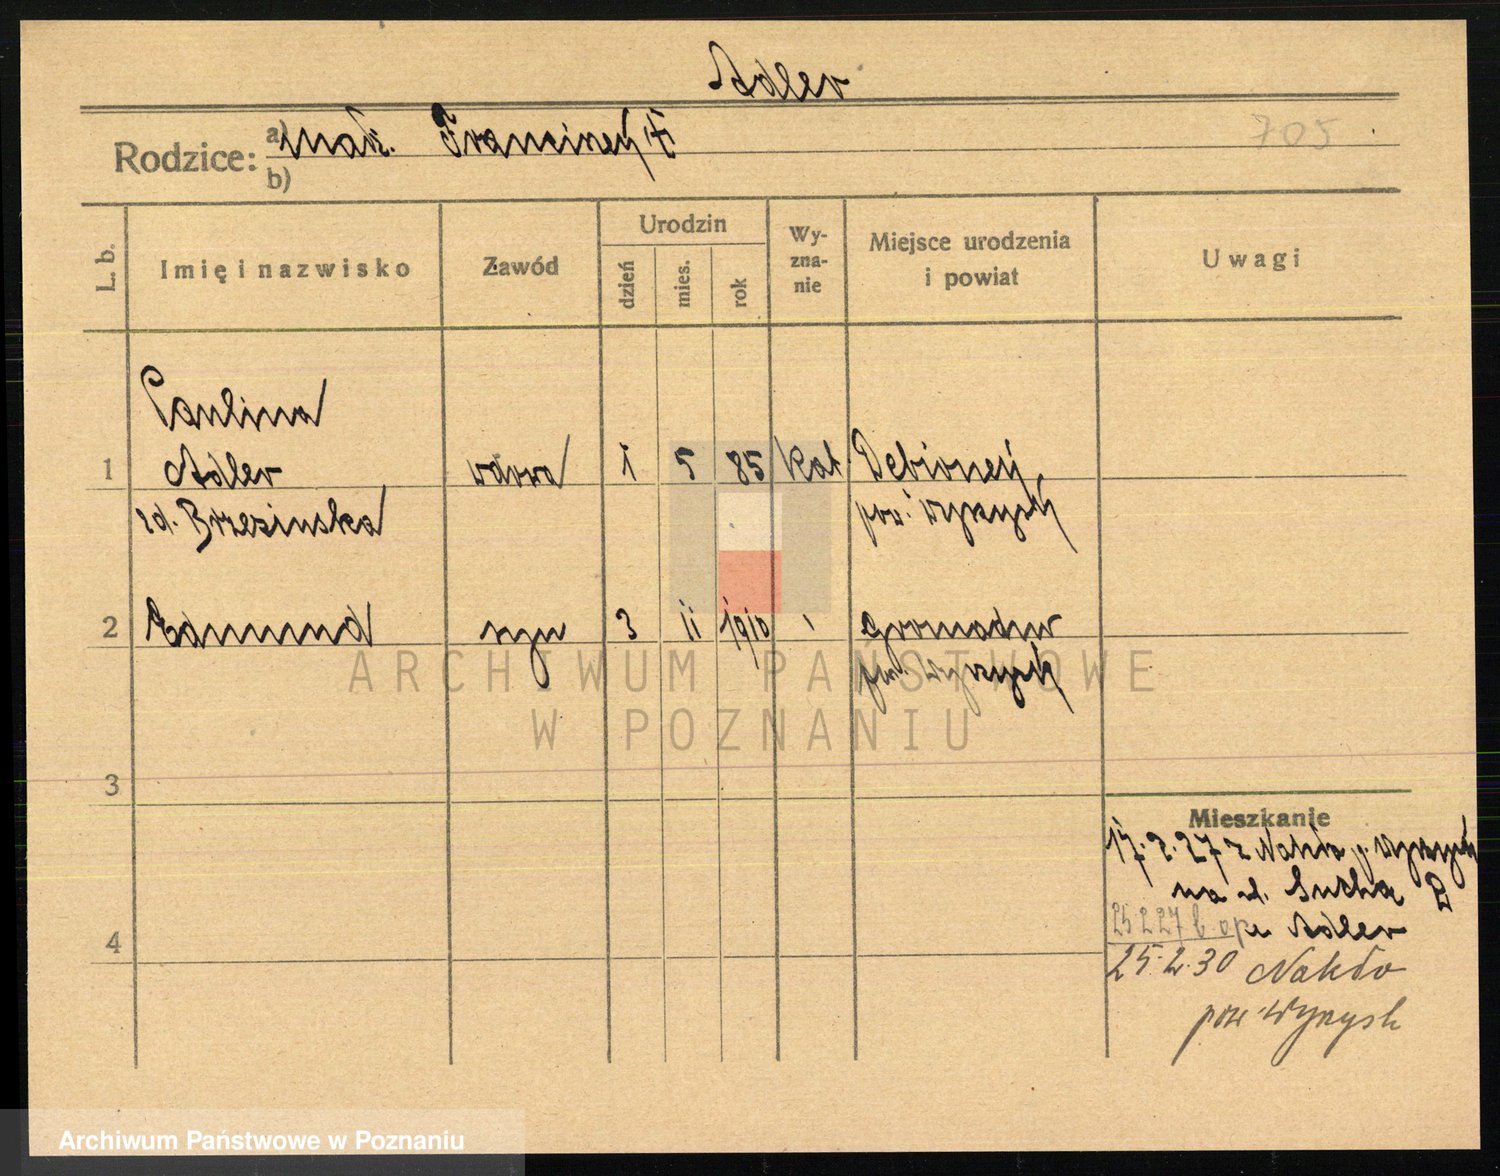 Adler
705
Rodzice: a) mał. Franciszek
b)
L. b.
Imię i nazwisko
Zawód
Urodzin
dzień
mies.
rok
Wy-
zna-
nie
Miejsce urodzenia
i powiat
Uwagi
Paulina
1 Adler wdowa 1 5 85 kat.
zd. Brzezinska pow. Wyrzysk
2 Edmund syn 3 11 1910 Gromadno
pow. Wyrzysk
ARCHIWUM PAŃSTWOWE
W POZNANIU
3
Mieszkanie
17.2.27 z Nakła p. Wyrzysk
na ul. Sucha 2
25 2 27 b op. Adler
4
25.2.30 Nakło
pow Wyrzysk
Archiwum Państwowe w Poznaniu